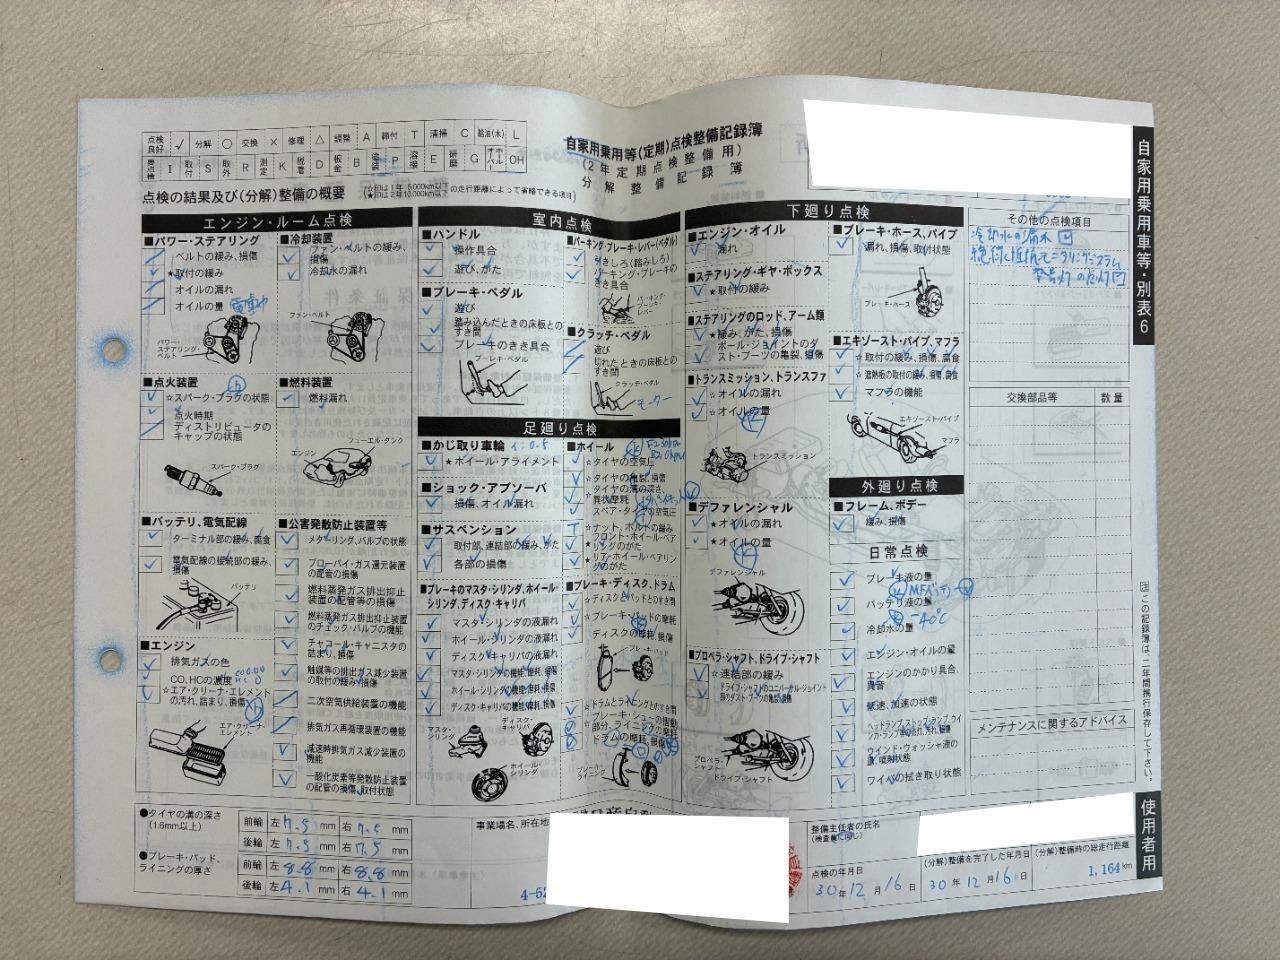 点検良好 ✓ 分解 ○ 交換 × 修理 △ 調整 A 締付 T 清掃 C 給油(水) L
要点検 I 取付 S 取外 R 測定 K 脱着 D 板金 B 塗装 P 溶接 E 研磨 G オーバーホール OH
点検の結果及び(分解)整備の概要
(☆印は1年15,000km以下 ★印は2年10,000km以下 の走行距離によって省略できる項目)
自家用乗用等(定期)点検整備記録簿
(2年定期点検整備用)
分解整備記録簿
自家用乗用車等・別表6
エンジン・ルーム点検
■パワー・ステアリング
ベルトの緩み、損傷
★取付の緩み
オイルの漏れ
オイルの量
電動
パワー・ステアリング・ベルト
■冷却装置
ファン・ベルトの緩み、損傷
冷却水の漏れ
ファン・ベルト
■点火装置
☆スパーク・プラグの状態
点火時期
ディストリビュータのキャップの状態
スパーク・プラグ
■燃料装置
燃料漏れ
フューエル・タンク
エンジン
■バッテリ、電気配線
ターミナル部の緩み、腐食
電気配線の接続部の緩み、損傷
バッテリ
■エンジン
排気ガスの色
CO、HCの濃度
☆エア・クリーナ・エレメントの汚れ、詰まり、損傷
エア・クリーナ・エレメント
■公害発散防止装置等
メターリング、バルブの状態
ブローバイ・ガス還元装置の配管の損傷
燃料蒸発ガス排出抑止装置の配管等の損傷
燃料蒸発ガス排出抑止装置のチェック・バルブの機能
チャコール・キャニスタの詰まり、損傷
触媒等の排出ガス減少装置の取付の緩み、損傷
二次空気供給装置の機能
排気ガス再循環装置の機能
減速時排気ガス減少装置の機能
一酸化炭素等発散防止装置の配管の損傷、取付状態
室内点検
■ハンドル
操作具合
遊び、がた
■ブレーキ・ペダル
遊び
踏み込んだときの床板とのすき間
ブレーキのきき具合
ブレーキ・ペダル
■パーキング・ブレーキ・レバー(ペダル)
引きしろ(踏みしろ)
パーキング・ブレーキのきき具合
パーキング・ブレーキ・レバー
■クラッチ・ペダル
遊び
切れたときの床板とのすき間
クラッチ・ペダル
モーター
足廻り点検
■かじ取り車輪
★ホイール・アライメント
■ショック・アブソーバ
損傷、オイル漏れ
■サスペンション
取付部、連結部の緩み、がた
各部の損傷
■ブレーキのマスタ・シリンダ、ホイール・シリンダ、ディスク・キャリパ
マスタ・シリンダの液漏れ
ホイール・シリンダの液漏れ
ディスク・キャリパの液漏れ
マスタ・シリンダの機能、摩耗、損傷
ホイール・シリンダの機能、摩耗、損傷
ディスク・キャリパの機能、摩耗、損傷
マスタ・シリンダ
ディスク・キャリパ
ホイール・シリンダ
■ホイール
☆タイヤの空気圧
☆タイヤの亀裂、損傷
☆タイヤの溝の深さ、異状摩耗
スペア・タイヤの空気圧
☆ナット、ボルトの緩み
★フロント・ホイール・ベアリングのがた
★リア・ホイール・ベアリングのがた
■ブレーキ・ディスク、ドラム
☆ディスクとパッドとのすき間
☆ブレーキ・パッドの摩耗
ディスクの摩耗、損傷
ブレーキ・パッド
☆ドラムとライニングとのすき間
☆ブレーキ・シューの摺動部分、ライニングの摩耗
ドラムの摩耗、損傷
ブレーキ・ライニング
下廻り点検
■エンジン・オイル
漏れ
■ステアリング・ギヤ・ボックス
★取付の緩み
■ステアリングのロッド、アーム類
★緩み、がた、損傷
ボール・ジョイントのダスト・ブーツの亀裂、損傷
■トランスミッション、トランスファ
☆オイルの漏れ
☆オイルの量
トランスミッション
■デファレンシャル
★オイルの漏れ
★オイルの量
デファレンシャル
■プロペラ・シャフト、ドライブ・シャフト
☆連結部の緩み
ドライブ・シャフトのユニバーサル・ジョイント部のダスト・ブーツの亀裂、損傷
プロペラ・シャフト
ドライブ・シャフト
■ブレーキ・ホース、パイプ
漏れ、損傷、取付状態
ブレーキ・ホース
■エキゾースト・パイプ、マフラ
☆取付の緩み、損傷、腐食
☆遮熱板の取付の緩み、損傷、腐食
マフラの機能
エキゾースト・パイプ
マフラ
外廻り点検
■フレーム、ボデー
緩み、損傷
日常点検
ブレーキ液の量
バッテリ液の量
MFバッテリ
冷却水の量
-40℃
エンジン・オイルの量
エンジンのかかり具合、異音
低速、加速の状態
ヘッドランプ、ストップランプ、ウインカ・ランプ等の点灯、汚れ、損傷
ウインド・ウォッシャ液の量、噴射状態
ワイパの拭き取り状態
その他の点検項目
冷却水の漏れ
絶縁抵抗モニタリングシステム
警告灯の点灯
交換部品等 数量
メンテナンスに関するアドバイス
注 この記録簿は、二年間携行保存して下さい。
使用者用
●タイヤの溝の深さ(1.6mm以上)
前輪 左7.5mm 右7.5mm
後輪 左7.5mm 右7.5mm
●ブレーキ・パッド、ライニングの厚さ
前輪 左8.8mm 右8.8mm
後輪 左4.1mm 右4.1mm
事業場名、所在地
4-52
整備主任者の氏名
(検査員に同じ)
点検の年月日
30年12月16日
(分解)整備を完了した年月日
30年12月16日
(分解)整備時の総走行距離
1,164km